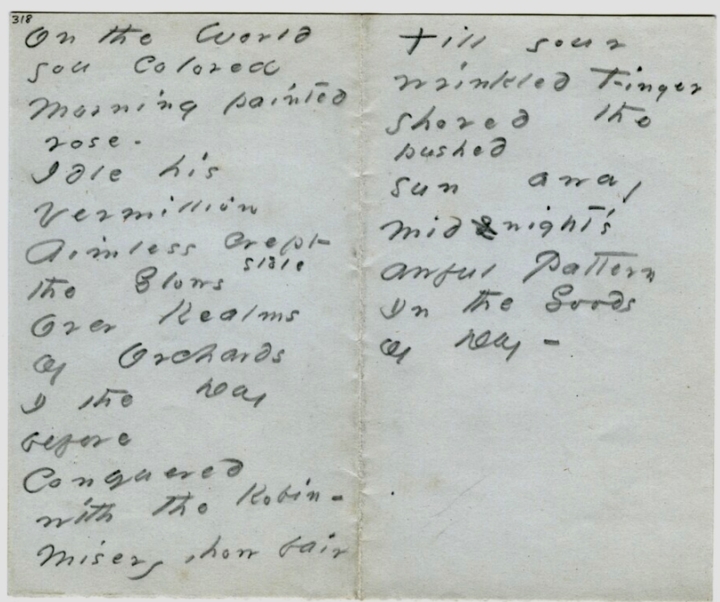 318
On the World
you Colored
Morning painted
rose -
Idle his
Vermillion
Aimless crept
stole
the Glows
Over Realms
Of Orchards
I the Day
before
Conquered
with the Robin -
Misery, how fair
Till your
wrinkled Finger
shored the
pushed
Sun away
Midnight's
awful Pattern
In the Goods
of Day -